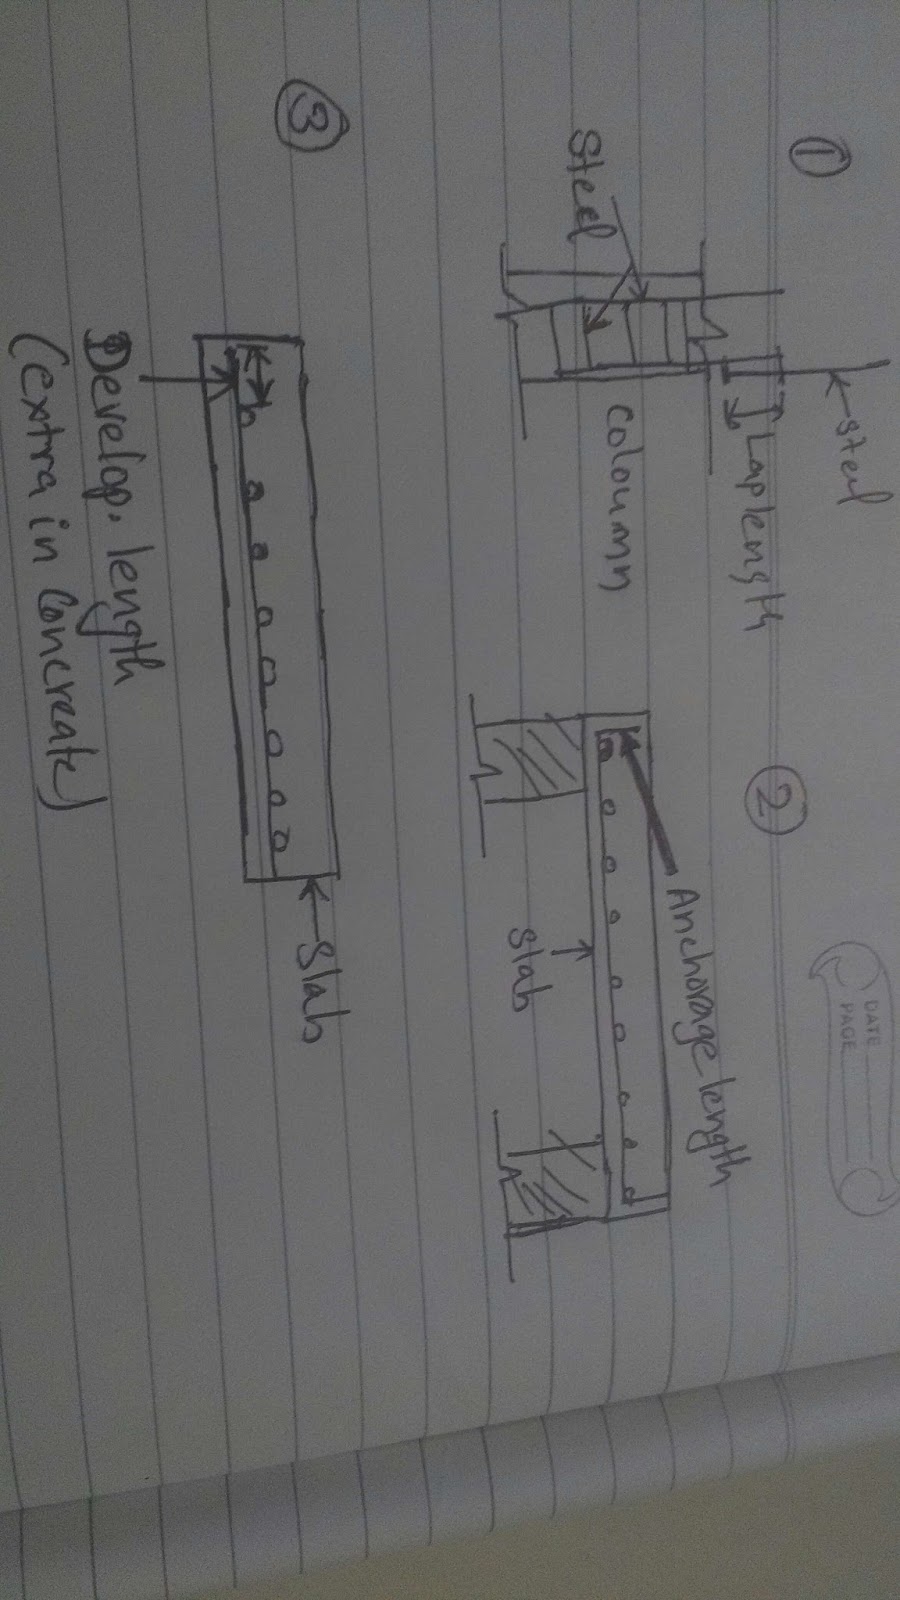 ①
Steel
Steel
Lap length
Coloumn
②
DATE
PAGE
Anchorage length
Slab
③
Slab
Develop. length
(extra in Concreate)